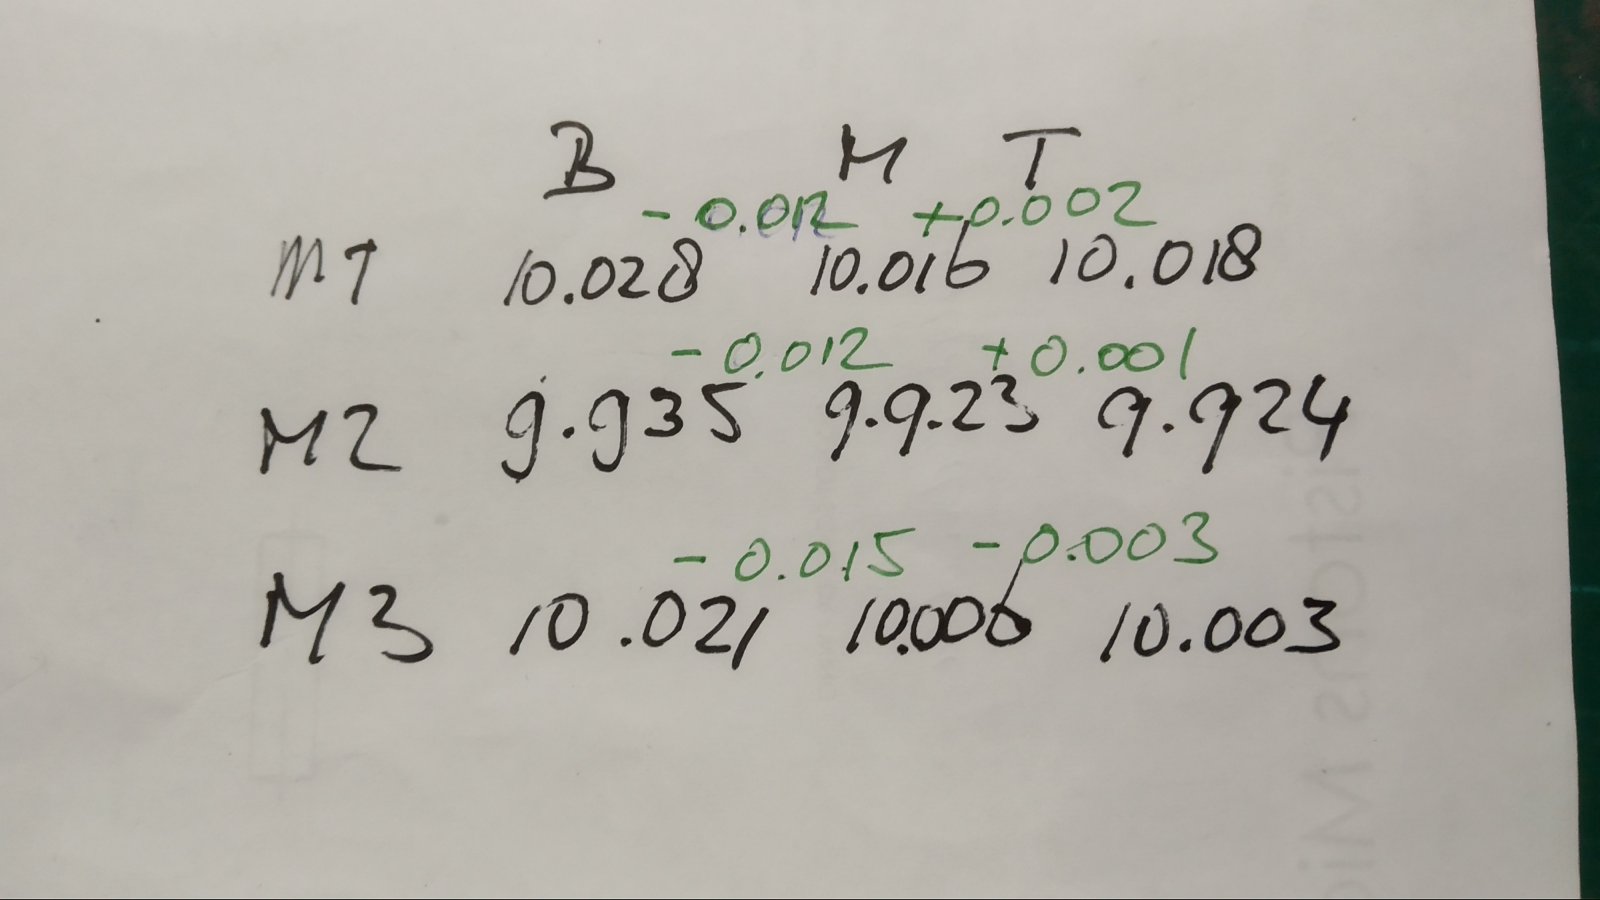 B M T
- 0.012 +0.002
M1 10.028 10.016 10.018
- 0.012 +0.001
M2 9.935 9.9.23 9.924
- 0.015 - 0.003
M3 10.021 10.006 10.003